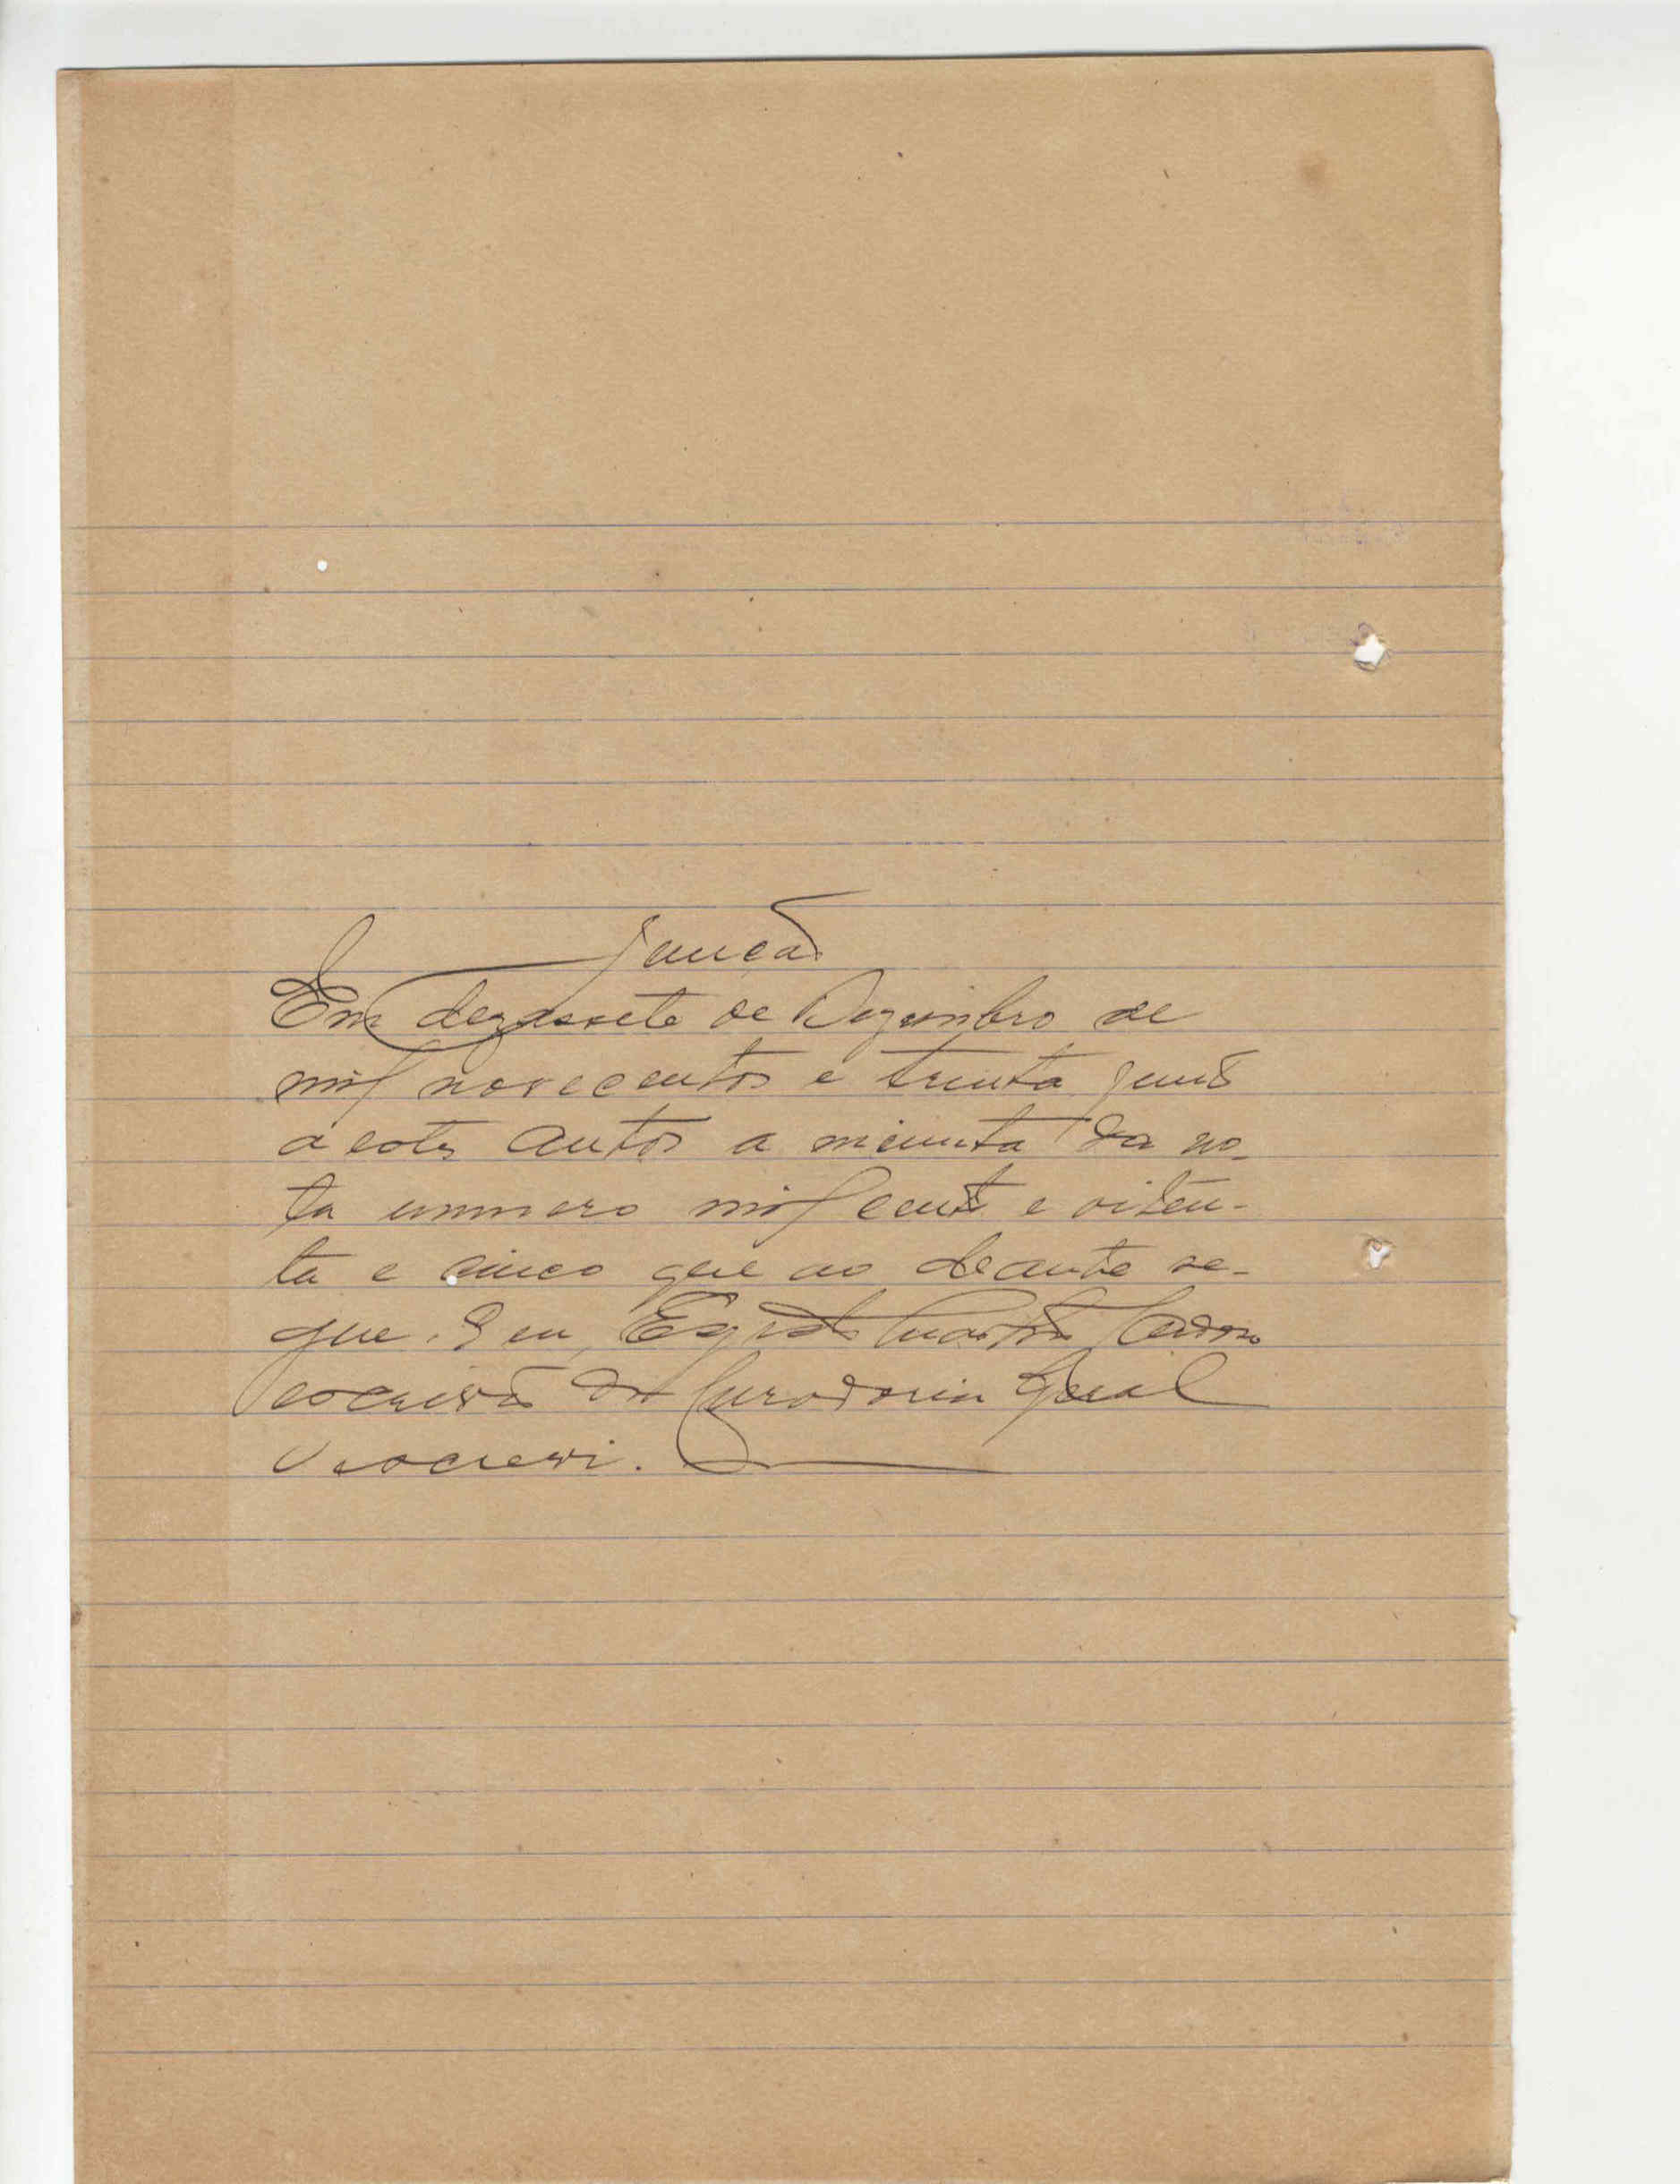 Junção
Em dezassete de Dezembro de
mil novecentos e trinta junto
a estes autos a minuta da no-
ta numero mil cento e oiten-
ta e cinco que ao deante se-
gue. E eu,
escrivão da Curadoria Geral
o escrevi.